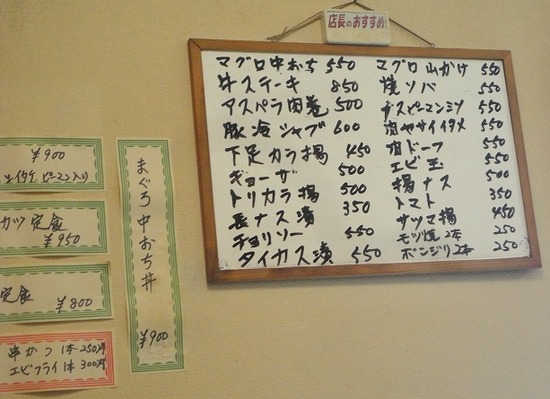 店長のおすすめ
マグロ中おち 550
牛ステーキ 850
アスパラ肉巻 500
豚冷シャブ 600
下足カラ揚 450
ギョーザ 500
トリカラ揚 500
長ナス漬 350
チョリソー 550
タイカス漬 550
マグロ山かけ 550
焼ソバ 550
ナスピーマンミソ 550
肉ヤサイイタメ 550
肉ドーフ 550
エビ玉 550
揚ナス 500
トマト 350
サツマ揚 450
モツ焼2本 250
ボンジリ2本 250
¥900
生イタケ ピーマン入り
カツ定食
¥950
定食
¥800
串かつ 1本 250円
エビフライ 1本 300円
まぐろ中おち丼 ¥900